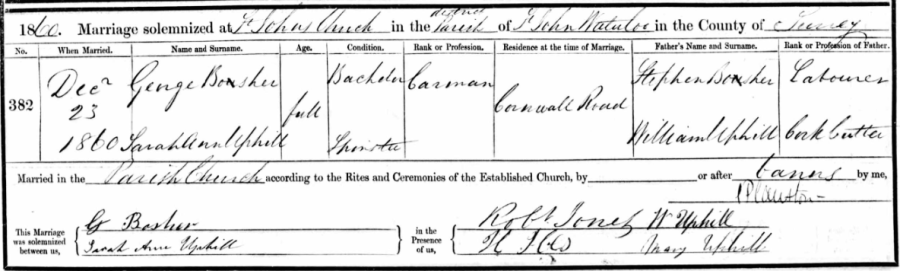 1860. Marriage solemnized at St Johns Church in the district Parish of St John Waterloo in the County of Surrey
No. When Married. Name and Surname. Age. Condition. Rank or Profession. Residence at the time of Marriage. Father's Name and Surname. Rank or Profession of Father.
382 Decr 23 1860 George Bosher full Bachelor Carman Cornwall Road Stephen Bosher Labourer
Sarah Ann Uphill Spinster William Uphill Cork Cutter
Married in the Parish Church according to the Rites and Ceremonies of the Established Church, by or after Banns by me,
This Marriage was solemnized between us, G Bosher Sarah Ann Uphill in the Presence of us, Robt Jones W Uphill Mary Uphill